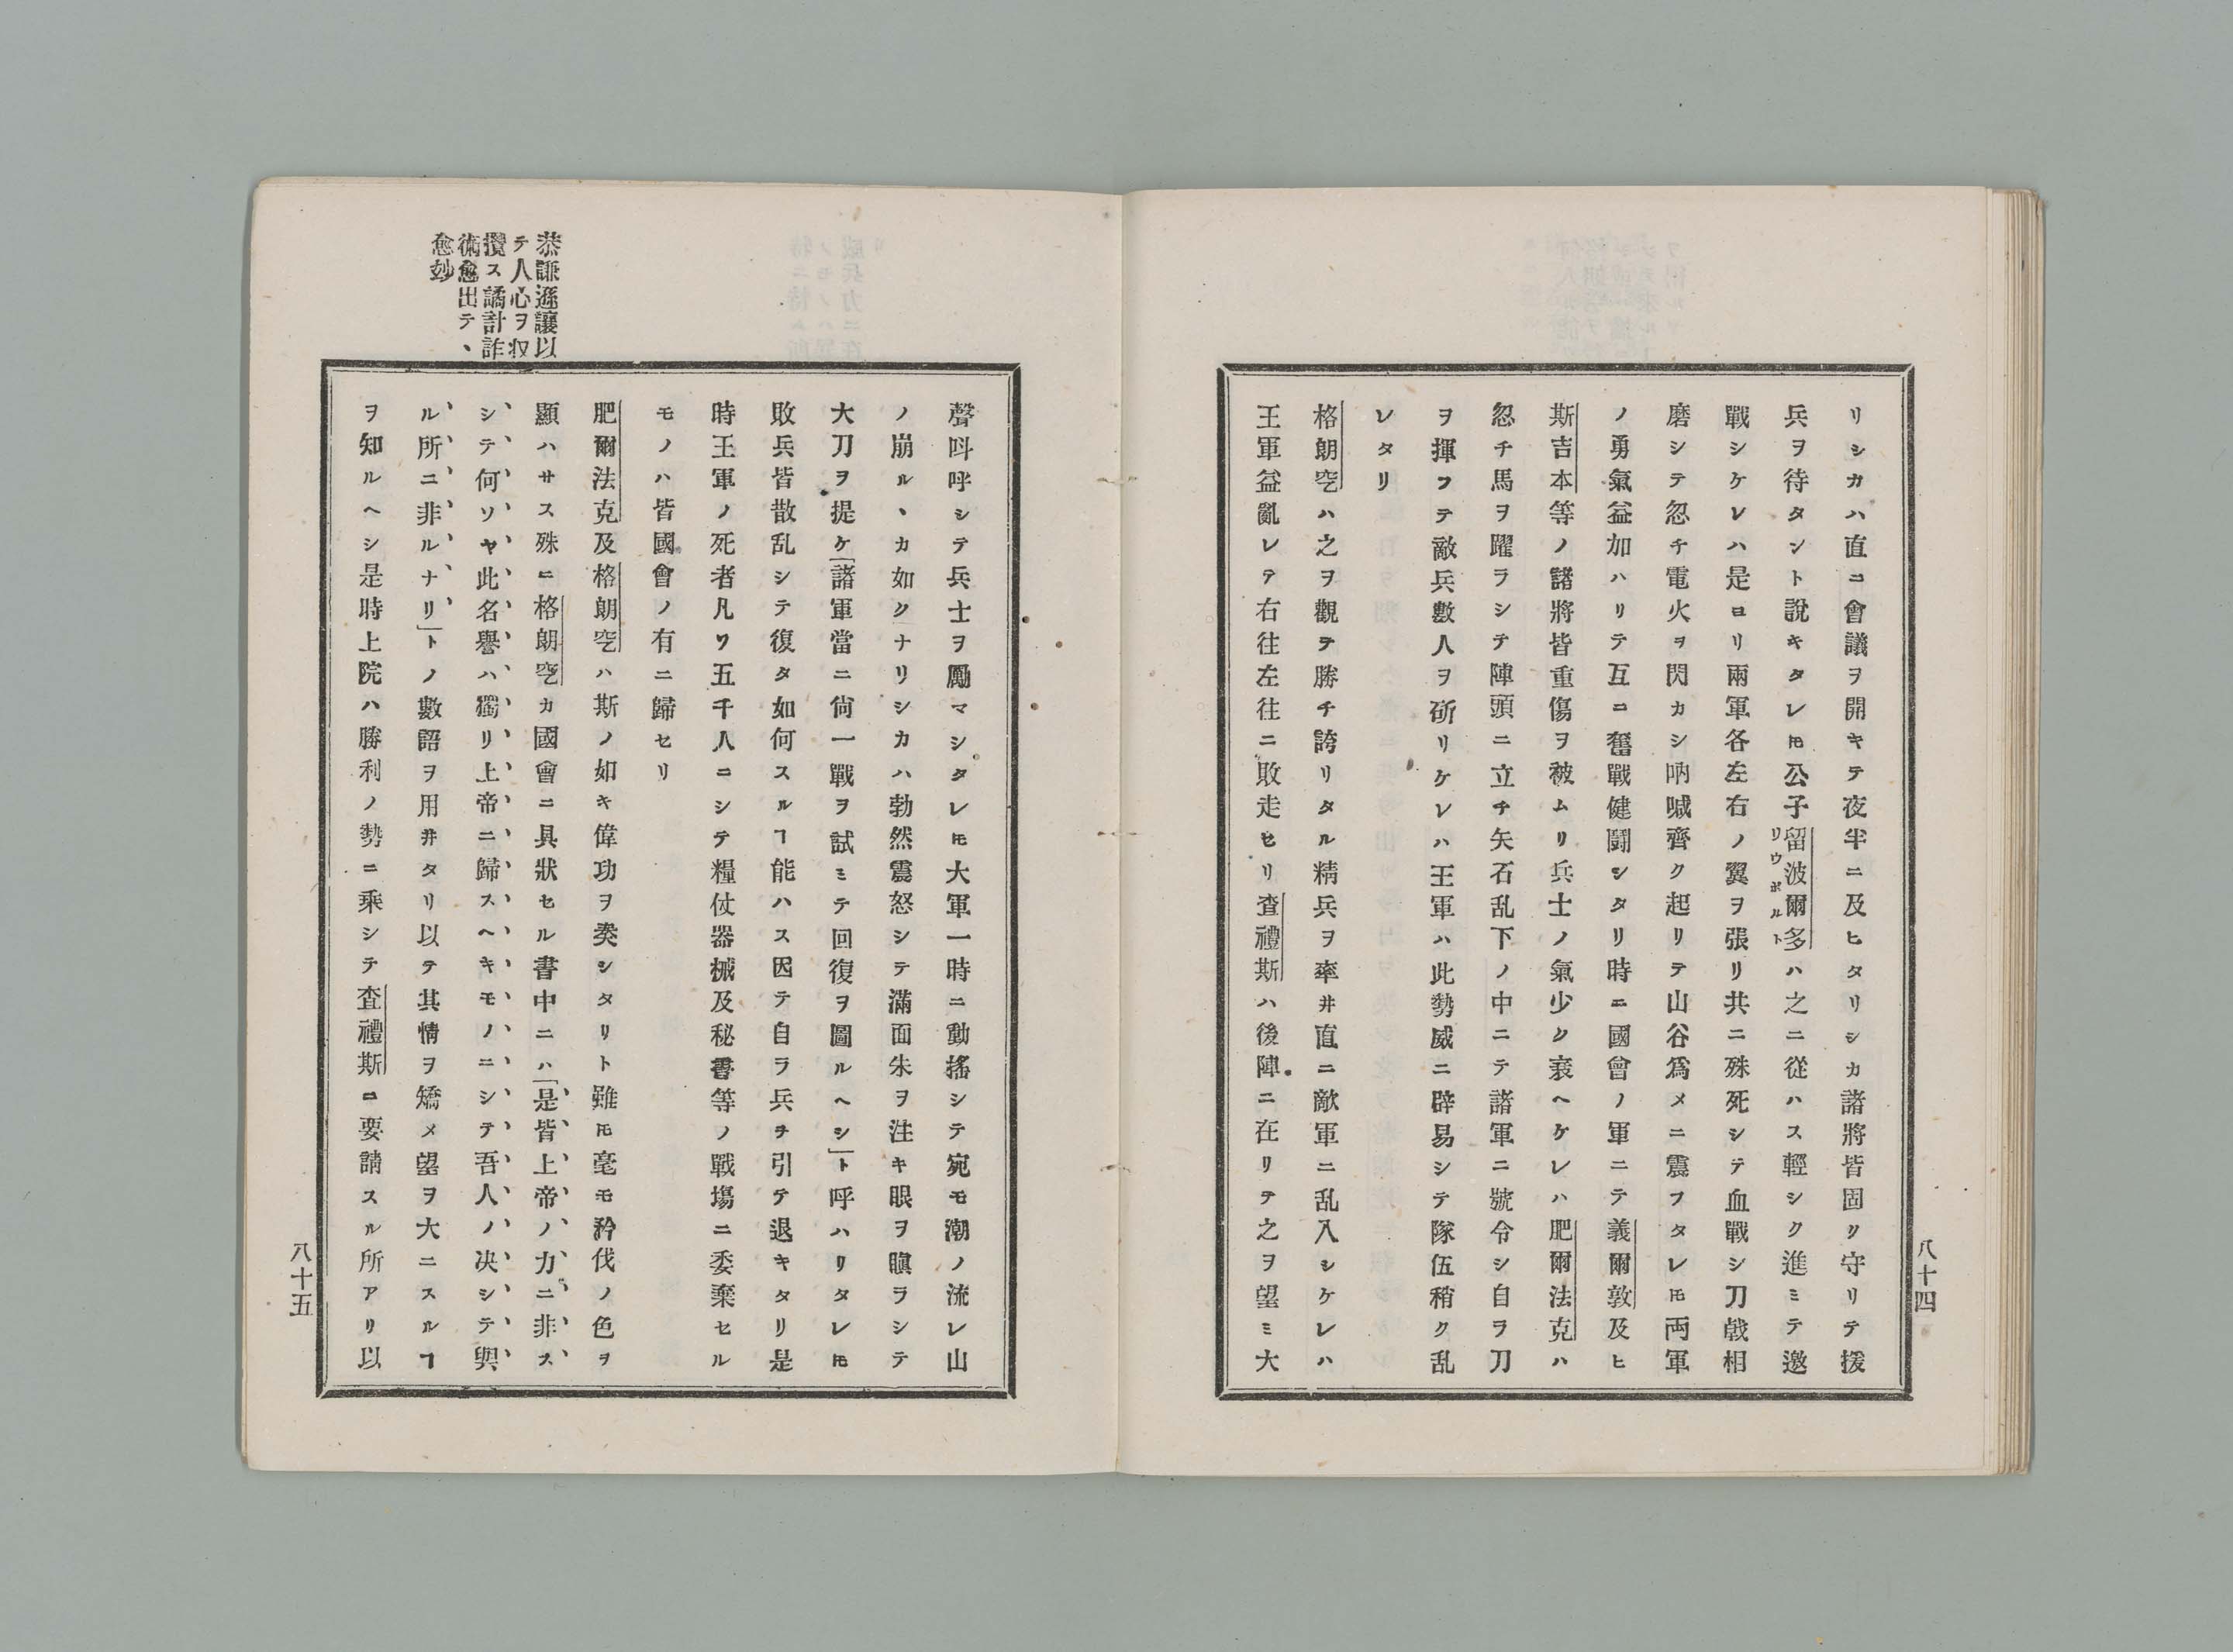 リシカハ直ニ會議ヲ開キテ夜半ニ及ヒタリシカ諸將皆固ク守リテ援
兵ヲ待タント說キタレ𪜈公子留波爾多ハ之ニ從ハス輕シク進ミテ邀
リウポルト
戰シケレハ是ヨリ兩軍各左右ノ翼ヲ張リ共ニ殊死シテ血戰シ刀戟相
磨シテ忽チ電火ヲ閃カシ吶喊齊ク起リテ山谷爲メニ震フタレ𪜈両軍
ノ勇氣益加ハリテ互ニ奮戰健鬪シタリ時ニ國會ノ軍ニテ義爾敦及ヒ
斯吉本等ノ諸將皆重傷ヲ被ムリ兵士ノ氣少ク衰ヘケレハ肥爾法克ハ
忽チ馬ヲ躍ラシテ陣頭ニ立チ矢石乱下ノ中ニテ諸軍ニ號令シ自ヲ刀
ヲ揮フテ敵兵數人ヲ斫リケレハ王軍ハ此勢威ニ辟易シテ隊伍稍ク乱
レタリ
格朗空ハ之ヲ觀テ勝チ誇リタル精兵ヲ率井直ニ敵軍ニ乱入シケレハ
王軍益亂レテ右往左往ニ敗走セリ査禮斯ハ後陣ニ在リテ之ヲ望ミ大
八十四
聲呌呼シテ兵士ヲ勵マシタレ𪜈大軍一時ニ動搖シテ宛モ潮ノ流レ山
ノ崩ルヽカ如クナリシカハ勃然震怒シテ滿面朱ヲ注キ眼ヲ瞋ラシテ
大刀ヲ提ケ「諸軍當ニ尙一戰ヲ試ミテ回復ヲ圖ルヘシ」ト呼ハリタレ𪜈
敗兵皆散乱シテ復タ如何スルヿ能ハス因テ自ラ兵ヲ引テ退キタリ是
時王軍ノ死者凡ソ五千人ニシテ糧仗器械及秘書等ノ戰塲ニ委棄セル
モノハ皆國會ノ有ニ歸セリ
肥爾法克及格朗空ハ斯ノ如キ偉功ヲ奏シタリト雖𪜈毫モ矜伐ノ色ヲ
顯ハサス殊ニ格朗空カ國會ニ具狀セル書中ニハ「是皆上帝ノ力ニ非ス
シテ何ソヤ此名譽ハ獨リ上帝ニ歸スヘキモノニシテ吾人ノ決シテ與
ル所ニ非ルナリ」トノ數語ヲ用井タリ以テ其情ヲ矯メ望ヲ大ニスルヿ
ヲ知ルヘシ是時上院ハ勝利ノ勢ニ乘シテ査禮斯ニ要請スル所アリ以
恭謙遜讓以
テ人心ヲ収
攬ス譎計詐
術愈出テヽ
愈玅
八十五